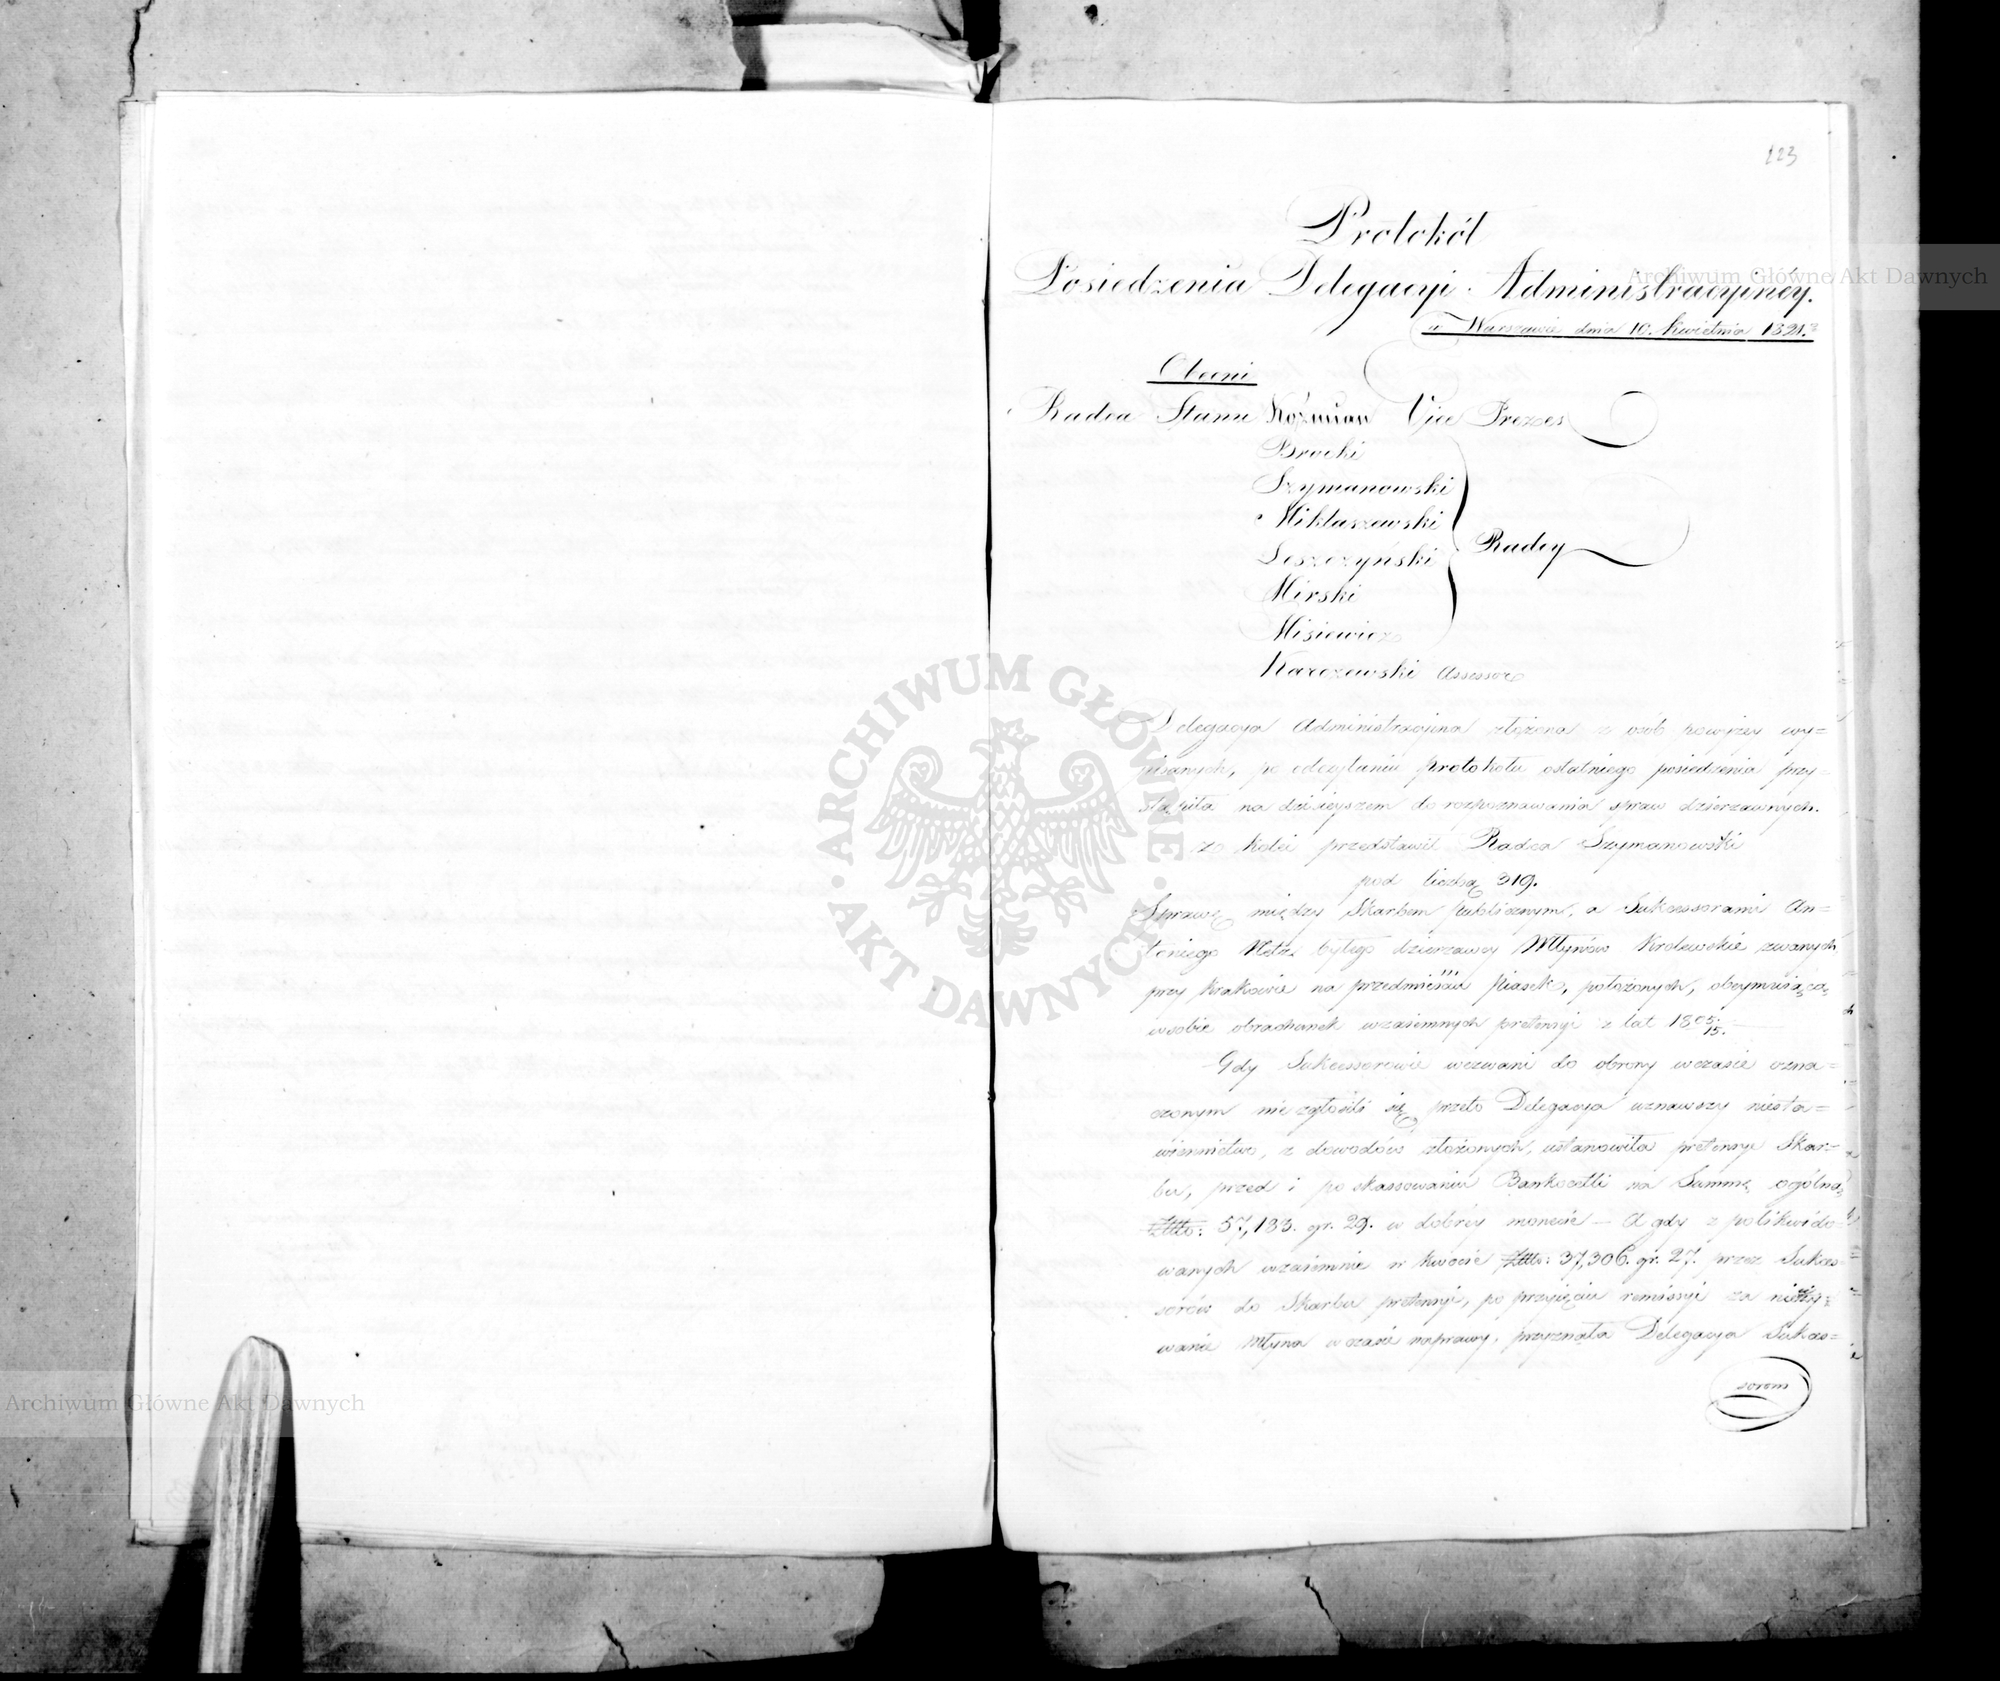 123
Protokół
Posiedzenia Delegacyi Administracyiney.
w Warszawie dnia 10. Kwietnia 1821.
Obecni
Radca Stanu Koźmian Vice Prezes
Brocki
Szymanowski
Mikłaszewski
Leszczyński
Radcy
Mirski
Misiewicz
Karczewski Assessor
Delegacya Administracyina złożona z osób powyżey wy=
pisanych, po odczytaniu protokołu ostatniego posiedzenia przy=
stąpiła na dzisieyszem do rozpoznawania spraw dzierzawnych.
z kolei przedstawił Radca Szymanowski
pod liczbą 319.
Sprawę między Skarbem publicznym, a Sukcessorami An=
toniego byłego dzierzawcy Młynów Krolewskie zwanych
przy Krakowie na przedmieściu Piasek, położonych, obeymuiącą
wsobie obrachunek wzaiemnych pretensyi z lat 1805/15.
Gdy Sukcessorowie wezwani do obrony wczasie ozna=
czonym nie zgłosili się, przeto Delegacya uznawszy niesta=
wiennictwo, z dowodów złożonych, ustanowiła pretensye Skar=
bu, przed i po skassowaniu Bankocetli na Summę ogólną
Złło: 57,133. gr. 29. w dobrey monecie — A gdy z polikwido=
wanych wzaiemnie w kwocie Złło: 37,306. gr. 27. przez Sukces=
sorów do Skarbu pretensyi, po przyięciu remissyi za nieuży=
wanie Młyna wczasie naprawy, przyznała Delegacya Sukces=
sorom
Archiwum Główne Akt Dawnych
ARCHIWUM GŁÓWNE · AKT DAWNYCH ·
Archiwum Główne Akt Dawnych